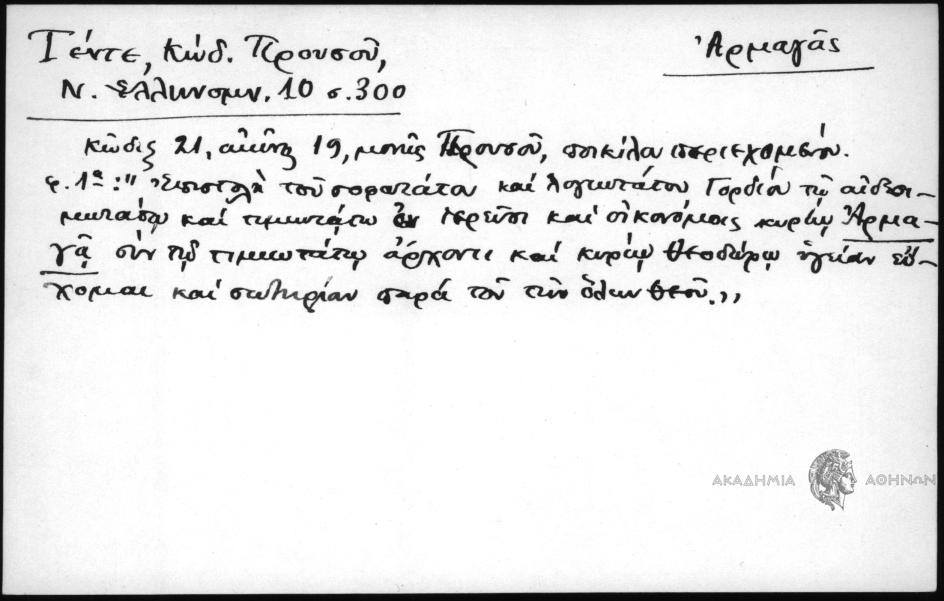 Γέντε, Κώδ. Προυσοῦ, Ἀρμαγᾶς
Ν. Ἑλληνομν. 10 σ. 300
Κῶδιξ 21, αἰῶνος 19, μονῆς Προυσοῦ, ποικίλου περιεχομένου.
φ. 1α: " Ἐπιστολὴ τοῦ σοφωτάτου καὶ λογιωτάτου Γορδίου τῷ αἰδεσι-
μωτάτῳ καὶ τιμιωτάτῳ ἐν ἱερεῦσι καὶ οἰκονόμοις κυρίῳ Ἀρμα-
γᾷ σὺν τῷ τιμιωτάτῳ ἄρχοντι καὶ κυρίῳ Θεοδώρῳ ὑγείαν εὔ-
χομαι καὶ σωτηρίαν παρὰ τοῦ τῶν ὅλων Θεοῦ.,,
ΑΚΑΔΗΜΙΑ ΑΘΗΝΩΝ